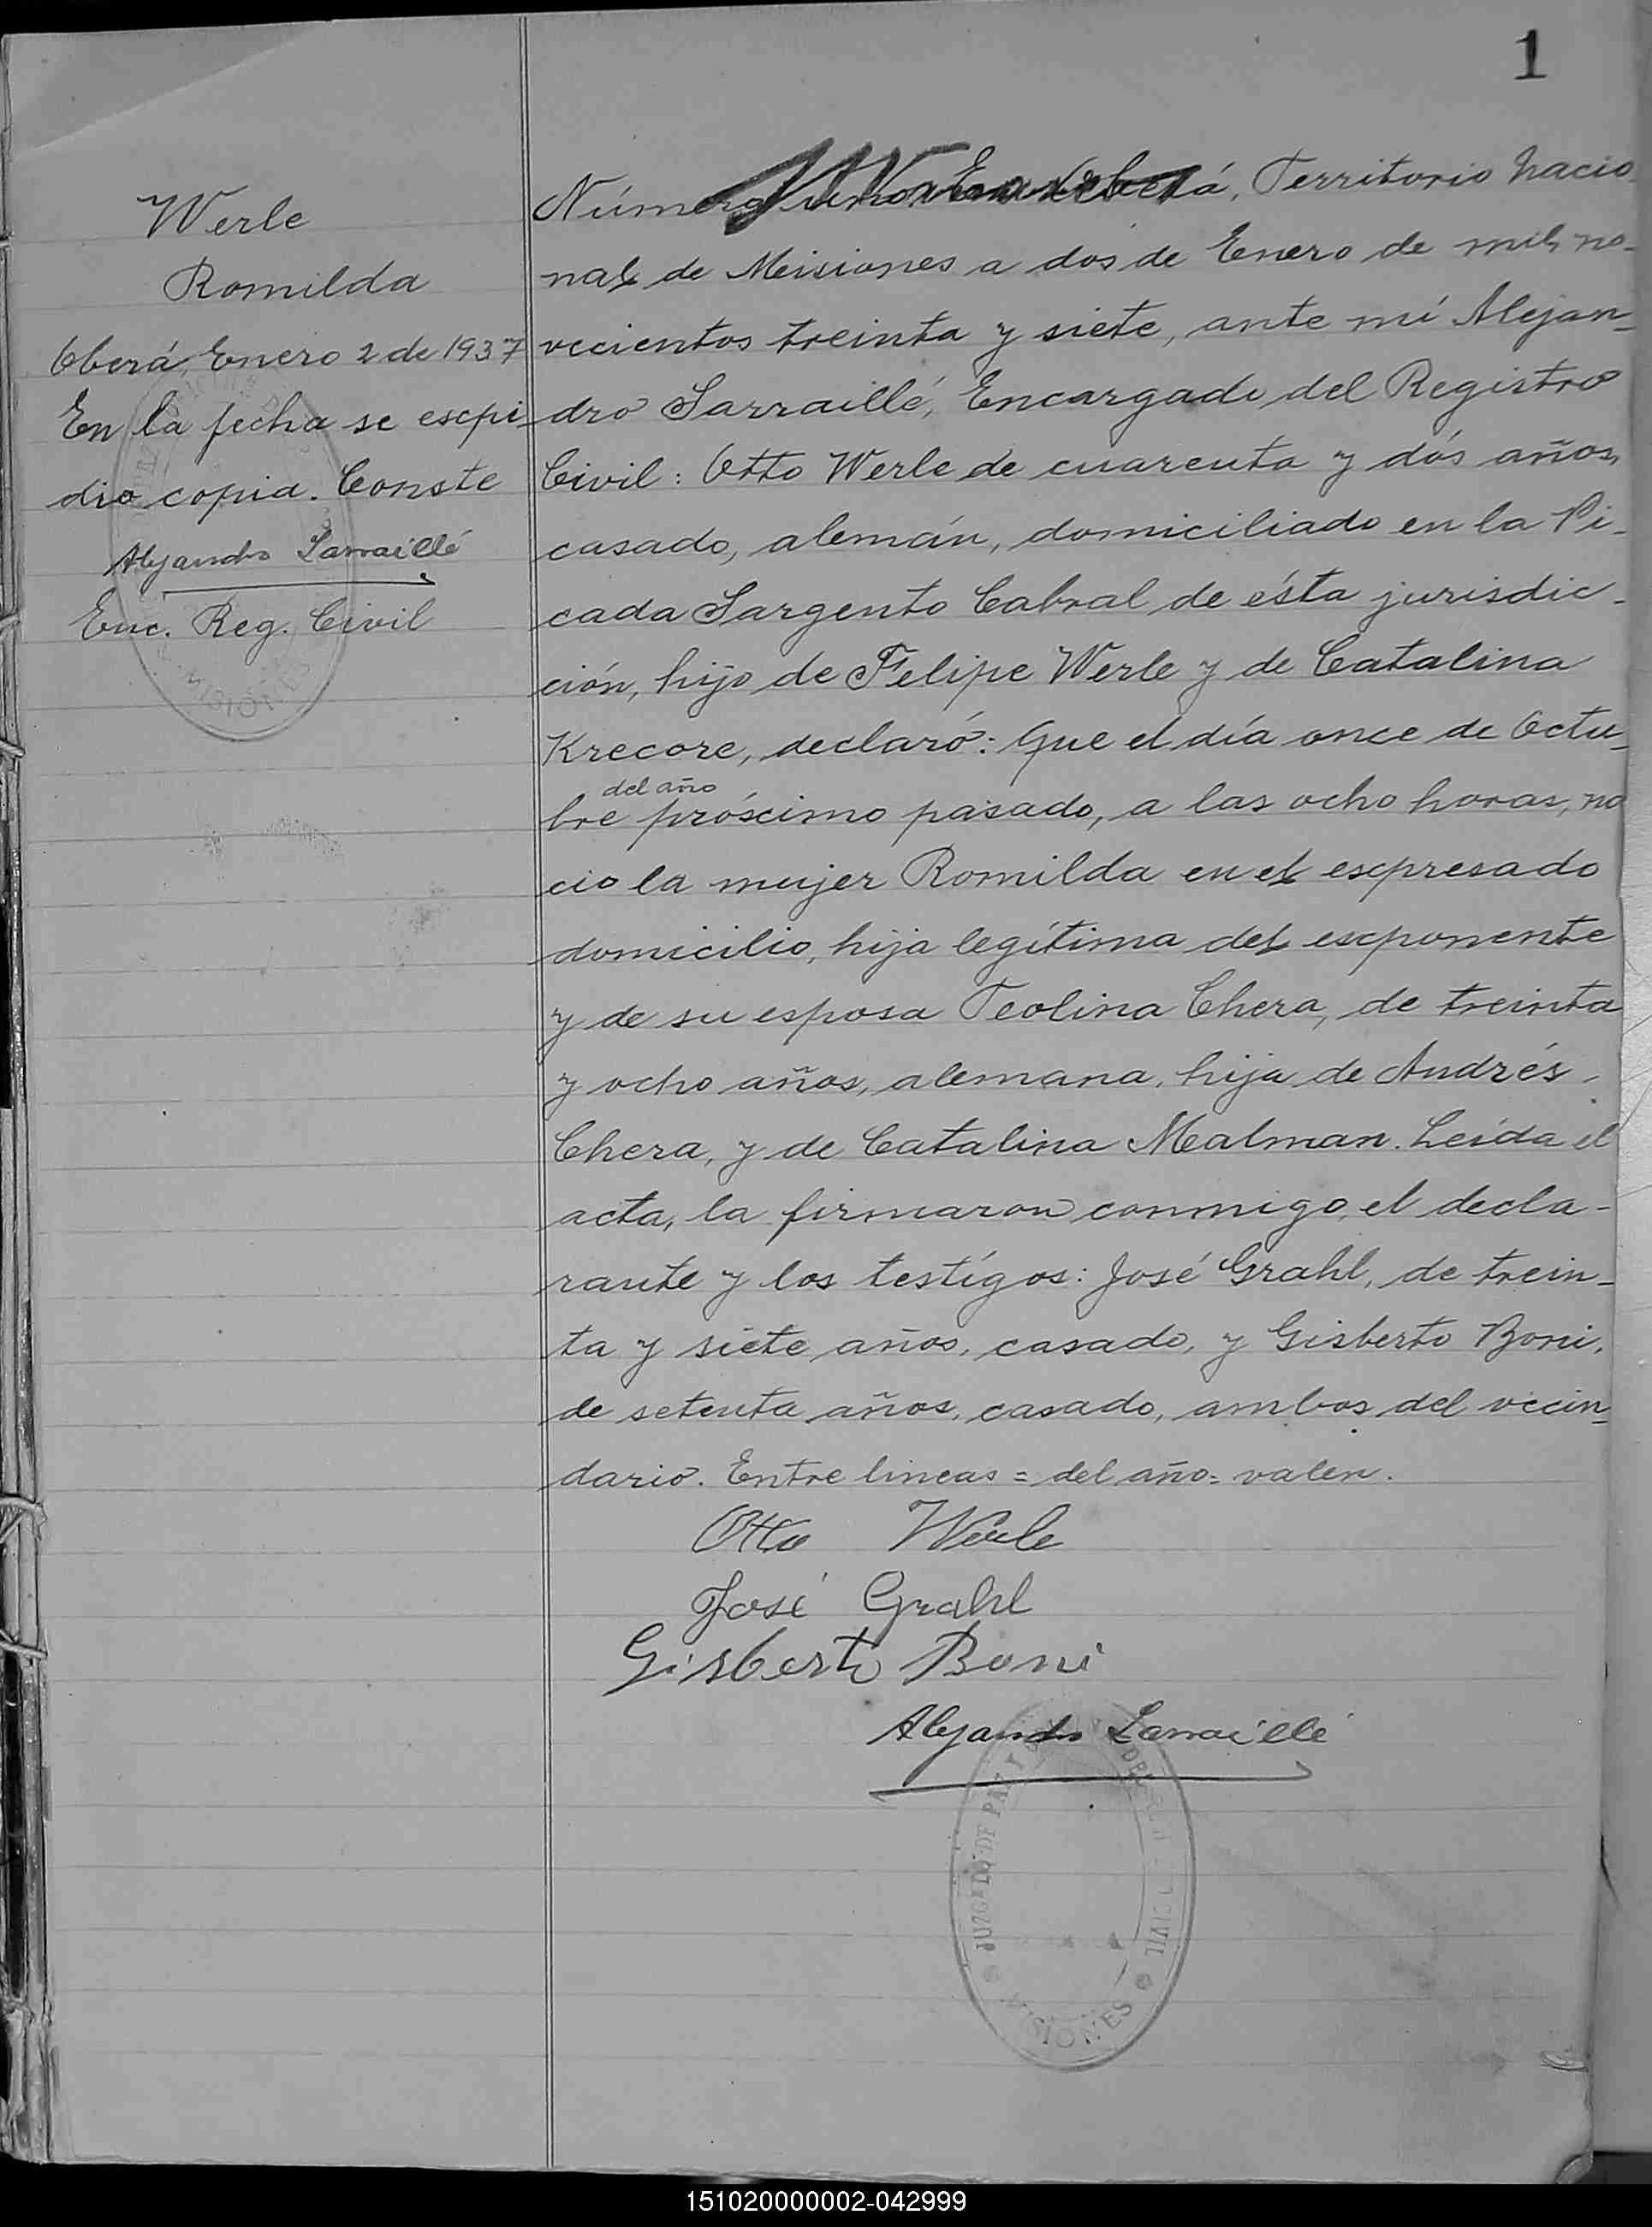 1
Werle
Romilda
Oberá, Enero 2 de 1937
En la fecha se escpi-
dio copia. Conste
Alejandro Sarraillé
Enc. Reg. Civil
MISIONES
Número uno. En Oberá, Territorio Nacio-
nal de Meisiones a dós de Enero de mil no-
vecientos treinta y siete, ante mí Alejan-
dro Sarraillé, Encargado del Registro
Civil: Otto Werle de cuarenta y dós años,
casado, alemán, domiciliado en la Pi-
cada Sargento Cabral de ésta jurisdic-
ción, hijo de Felipe Werle y de Catalina
Krecore, declaró: Que el día once de Octu-
del año
bre próscimo pasado, a las ocho horas, na
cio la mujer Romilda en el escpresado
domicilio, hija legítima del escponente
y de su esposa Teolina Chera, de treinta
y ocho años, alemana, hija de Andrés
Chera, y de Catalina Malman. Leída el
acta, la firmaron conmigo, el decla-
rante y los testígos: José Grahl, de trein-
ta y siete años, casado, y Gisberto Boni,
de setenta años, casado, ambos del vecin-
dario. Entre lineas = del año = valen.
Otto Werle
José Grahl
Gisberto Boni
Alejandro Sarraillé
JUZGADO DE PAZ Y
CIVIL
MISIONES
151020000002-042999